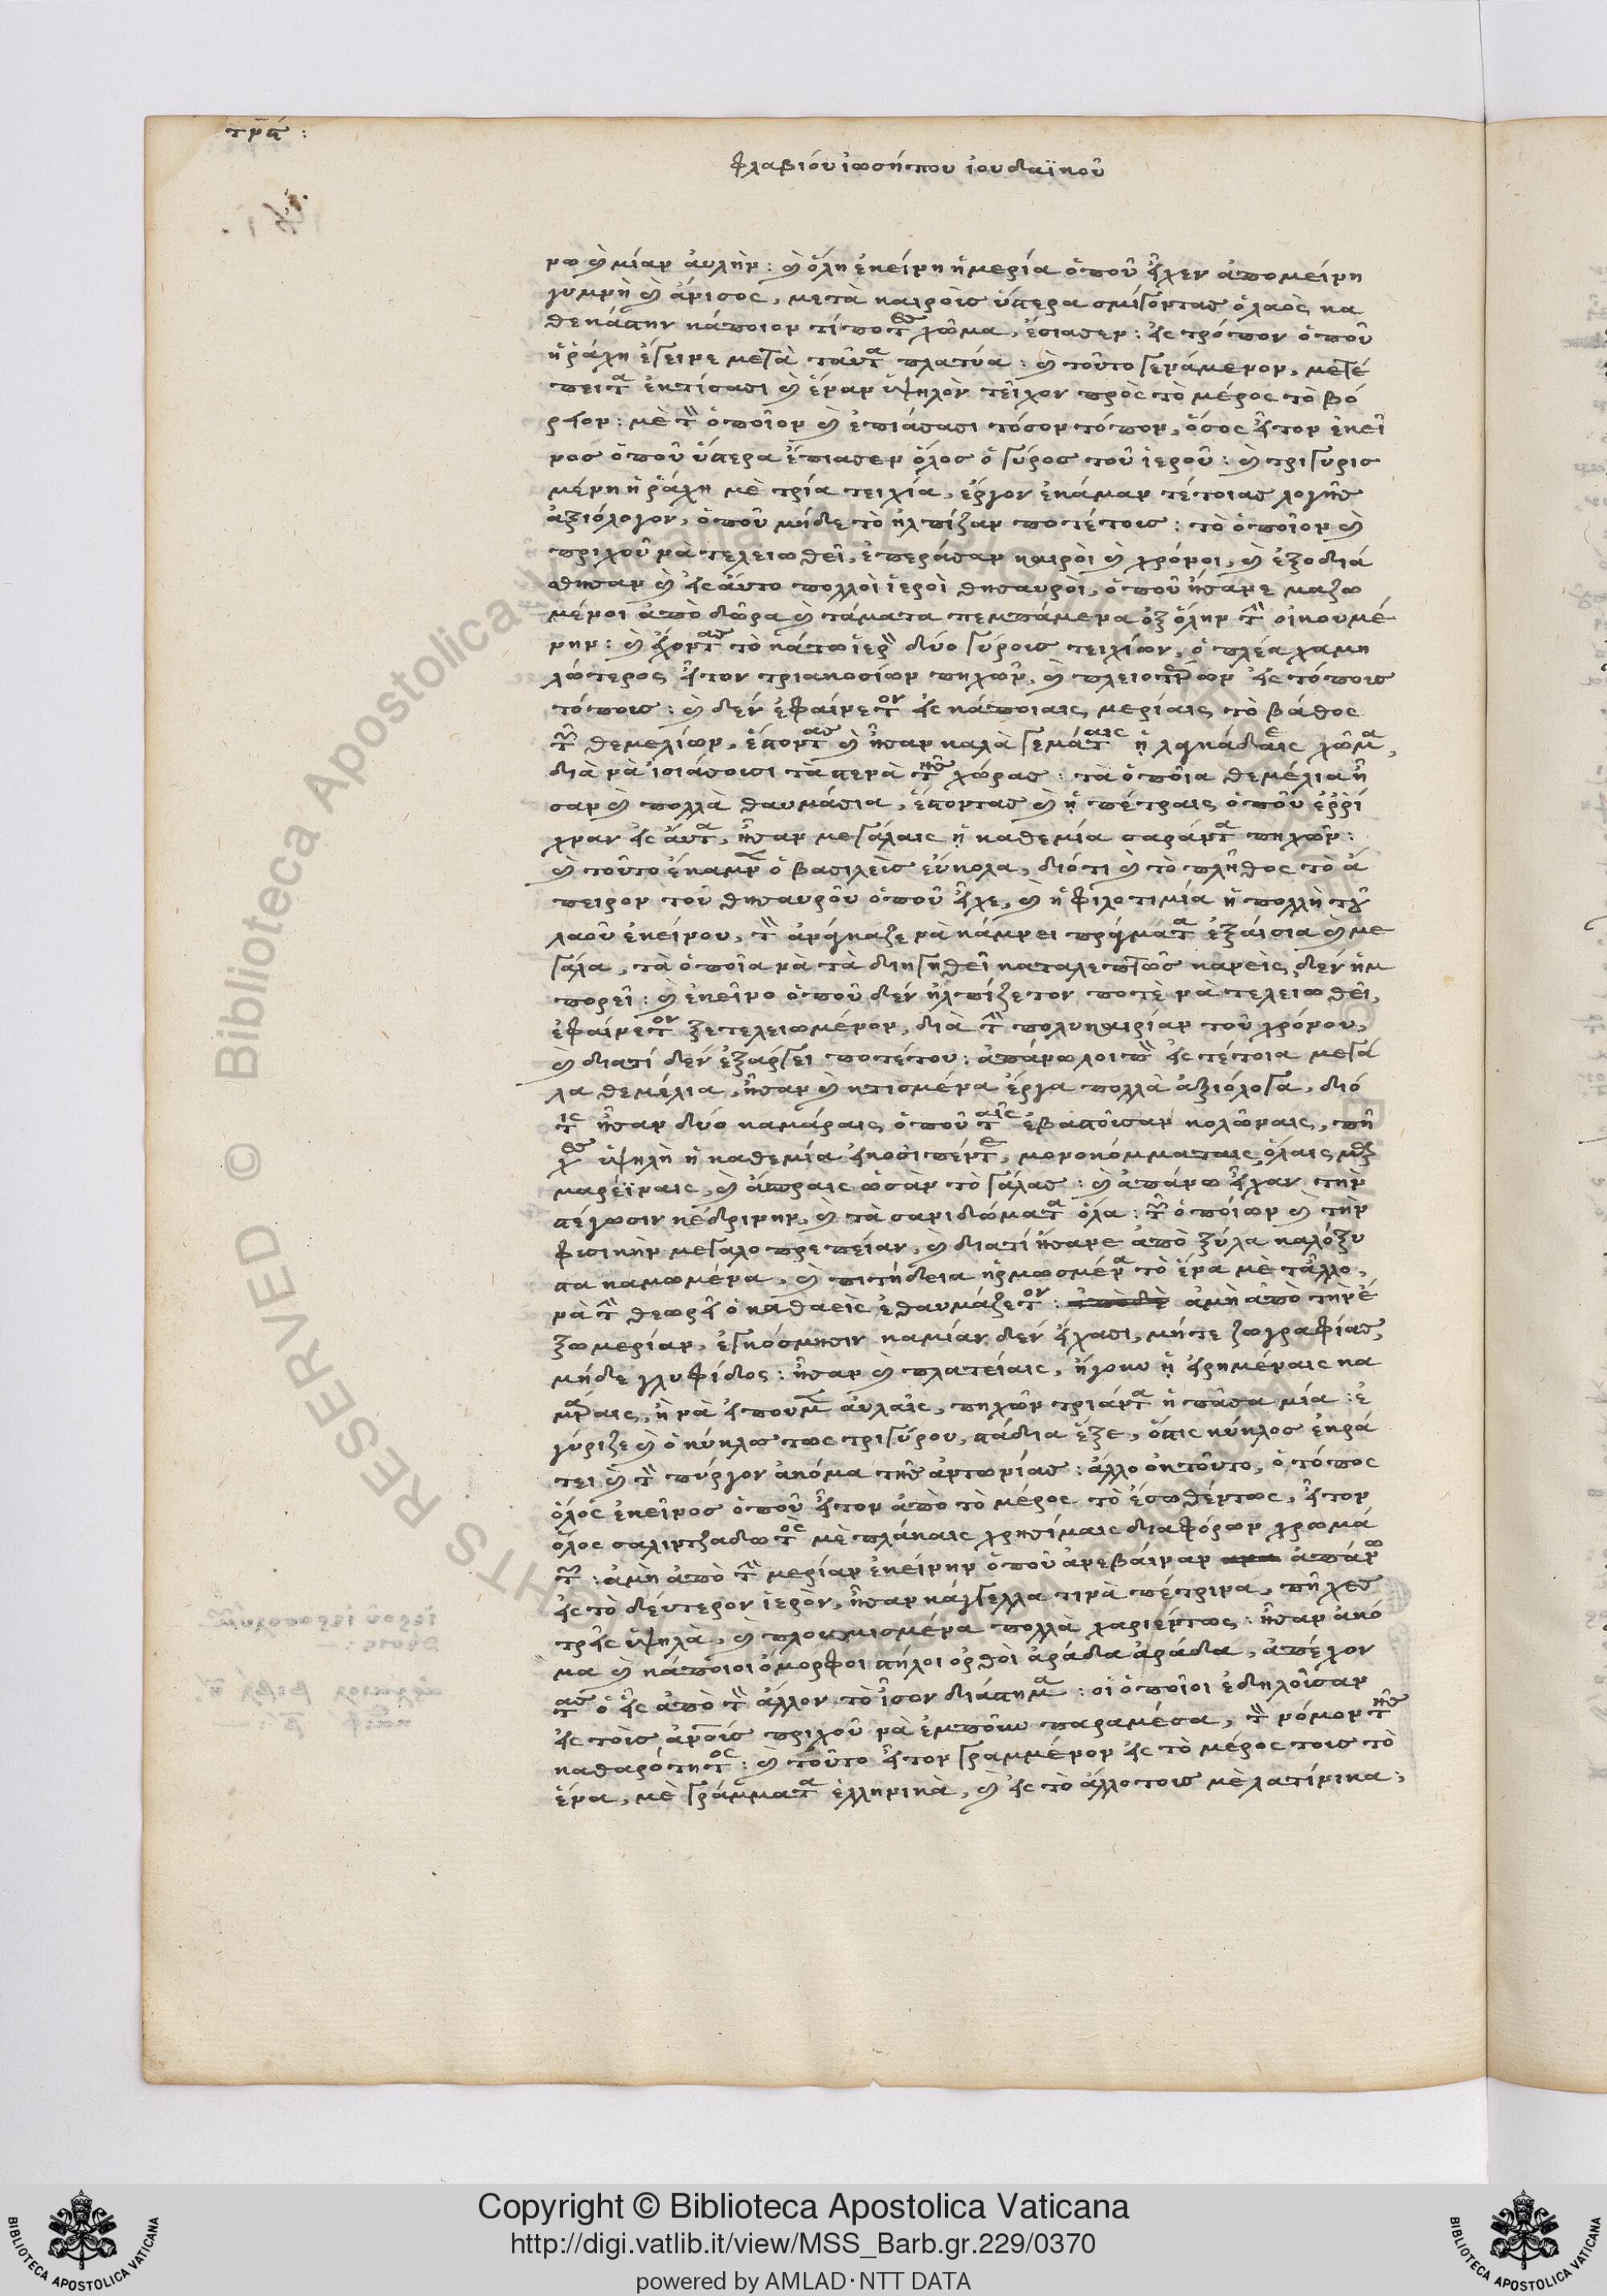 τμα:
φλαβιόυ ἰωσήπου ἰουδαϊκοῦ
νω ϗ μίαν ἀυλὴν: ϗ ὅλη ἐκείνη ἡ μερία ὁποῦ εἶχεν ἀπομείνη
γυμνὴ ϗ ἄνισος, μετὰ καιροὺς ὕστερα σμίγοντας ὁ λαὸς κα
θεκάστην κάποιον τίποτες χῶμα, ἐσίασεν: εἰς τρόπον ὁποῦ
ἡ ῥάχη ἐγεινε μεγὰ ταῦτα πλατύα: ϗ τοῦτο γενάμενον, μετέ
πειτα ἐκτίσασι ϗ ἕναν ὑψηλὸν τεῖχον πρὸς τὸ μέρος τὸ βό
ρειον: μὲ τὸ ὁποῖον ϗ ἐπιάσασι τόσον τόπον, ὅσος ἦτον ἐκεῖ
νος ὁποῦ ὕστερα ἔπιασεν ὅλος ὁ γύρος τοῦ ἱεροῦ: ϗ τριγυρισ
μένη ἡ ῥάχη μὲ τρία τειχία, ἔργον ἐκάμαν τέτοιας λογῆς
ἀξιόλογον, ὁποῦ μήδε τὸ ἠλπίζαν ποτέτους: τὸ ὁποῖον ϗ
πριχοῦ νὰ τελειωθεῖ, ἐπεράσαν καιροὶ ϗ χρόνοι, ϗ ἐξοδιά
σθησαν ϗ εἰς ἀυτο πολλοὶ ἱεροὶ θησαυροὶ, ὁποῦ ἤσανε μαζω
μένοι ἀπὸ δῶρα ϗ τάματα πεμπάμενα ἐξ ὅλην τὴν οἰκουμέ
νην: ϗ ἔχοντας τὸ κάτω ἱερὸν δύο γύρους τειχίων, ὁ πλέα χαμη
λώτερος ἦτον τριακοσίων πηχῶν, ϗ πλειοτέρων εἰς τόπους
τόπους: ϗ δὲν ἐφαίνετον εἰς κάποιαις μερίαις τὸ βάθος
τῶν θεμελίων, ἔστοντας ϗ ἦσαν καλὰ γεμάταις ἡ λακάδαις χῶμα,
διὰ νὰ ἰσιάσουσι τὰ στενὰ τῆς χώρας: τὰ ὁποῖα θεμέλια ἦ
σαν ϗ πολλὰ θαυμάσια, ἔστοντας ϗ ἡ πέτραις ὁποῦ ἐῤῥί
χναν εἰς ἀυτὰ, ἦσαν μεγάλαις ἡ καθεμία σαράντα πηχῶν:
ϗ τοῦτο ἐκαμνεν ὁ βασιλεὺς εὔκολα, διότι ϗ τὸ πλῆθος τὸ ἄ
πειρον τοῦ θησαυροῦ ὁποῦ εἶχε, ϗ ἡ φιλοτιμία ἡ πολλὴ τοῦ
λαοῦ ἐκείνου, τὸν ἀνάγκαζε νὰ κάμνει πράγματα ἐξαίσια ϗ με
γάλα, τὰ ὁποῖα νὰ τὰ διηγηθεῖ καταλεπτῶς κανεὶς δὲν ἠμ
πορεῖ: ϗ ἐκεῖνο ὁποῦ δὲν ἠλπίζετον ποτὲ νὰ τελειωθεῖ,
ἐφαίνετον ξετελειωμένον, διὰ τὴν πολυκαιρίαν τοῦ χρόνου,
ϗ διατί δὲν ἐξάργει ποτέτου: ἀπάνω λοιπὸν εἰς τέτοια μεγά
λα θεμέλια, ἦσαν ϗ κτισμένα ἔργα πολλὰ ἀξιόλογα, διό
τις ἦσαν δύο καμάραις ὁποῦ ταῖς ἐβαστοῦσαν κολῶναις, πῆ
χες ὑψηλὴ ἡ καθεμία εἰκοσιπέντε, μονοκόμματαις ὅλαις
μαρεΐναις, ϗ ἄσπραις ὡσὰν τὸ γάλας: ϗ ἀπάνω εἶχαν τὴν
στέγωσιν κέδρινην, ϗ τὰ σανιδώματα ὅλα: τῶν ὁποίων ϗ τὴν
φισικὴν μεγαλοπρεπείαν, ϗ διατί ἤσανε ἀπὸ ξύλα καλόξυ
στα καμωμένα, ϗ πιτήδεια ἡρμωσμένα τὸ ἕνα μὲ τἆλλο,
νὰ τὴν θεωρεῖ ὁ καθαεὶς ἐθαυμάζετον: ἀμὴ ἀπὸ τὴν ἐ
ξωμερίαν, ἐγκόσμησιν καμίαν δὲν εἴχασι, μήτε ζωγραφίας,
μήδε γλυφίδος: ἦσαν ϗ πλατείαις, ἤγουν ἡ εἰρημέναις κα
μάραις, ἢ νὰ εἰποῦμεν ἀυλαῖς, πηχῶν τριάντα ἡ πᾶσα μία: ἐ
γύριζε ϗ ὁ κύκλος τως τριγύρου, στάδια ἕξε, ὅστις κύκλος ἐκρά
τει ϗ τὸν πύργον ἀκόμα τῆς ἀντωνίας: ἄλλο ἐκ τοῦτο, ὁ τόπος
ὅλος ἐκεῖνος ὁποῦ ἦτον ἀπὸ τὸ μέρος τὸ ἔσωθέντως, ἦτον
ὅλος σαλιντζαδωτὸς μὲ πλάκαις χρησίμαις διαφόρων χρωμά
των: ἀμὴ ἀπὸ τὴν μερίαν ἐκείνην ὁποῦ ἀνεβαίναν ἀπάνω
εἰς τὸ δέυτερον ἱερὸν, ἦσαν κάγγελλα τινὰ πέτρινα, πῆχες
τρεῖς ὑψηλὰ, ϗ πλουμισμένα πολλὰ χαριέντως: ἦσαν ἀκό
μα ϗ κάποιοι ὄμορφοι στύλοι ὀρθοὶ ἀράδα ἀράδα, ἀπέχον
τας ὁ εἷς ἀπὸ τὸν ἄλλον τὸ ἶσον διάστημα: οἱ ὁποῖοι ἐδηλοῦσαν
εἰς τοὺς πριχοῦ νὰ ἐμποῦν παραμέσα, τὸν νόμον τῆς
καθαρότητος: ϗ τοῦτο ἦτον γραμμένον εἰς τὸ μέρος τους τὸ
ἕνα, μὲ γράμματα ἑλληνικὰ, ϗ εἰς τὸ ἄλλο τους μὲ λατίνικα:
© Biblioteca Apostolica Vaticana
RIGHTS RESERVED
Copyright © Biblioteca Apostolica Vaticana
http://digi.vatlib.it/view/MSS_Barb.gr.229/0370
powered by AMLAD·NTT DATA
BIBLIOTECA APOSTOLICA VATICANA
BIBLIOTECA APOSTOLICA VATICANA